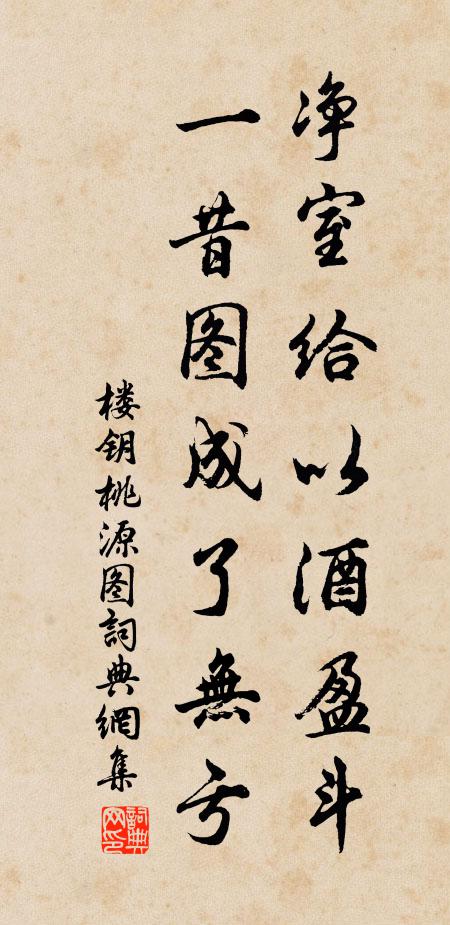 净室给以酒盈斗
一昔图成了無亏
楼钥桃源图詞典網集
詞典
网印